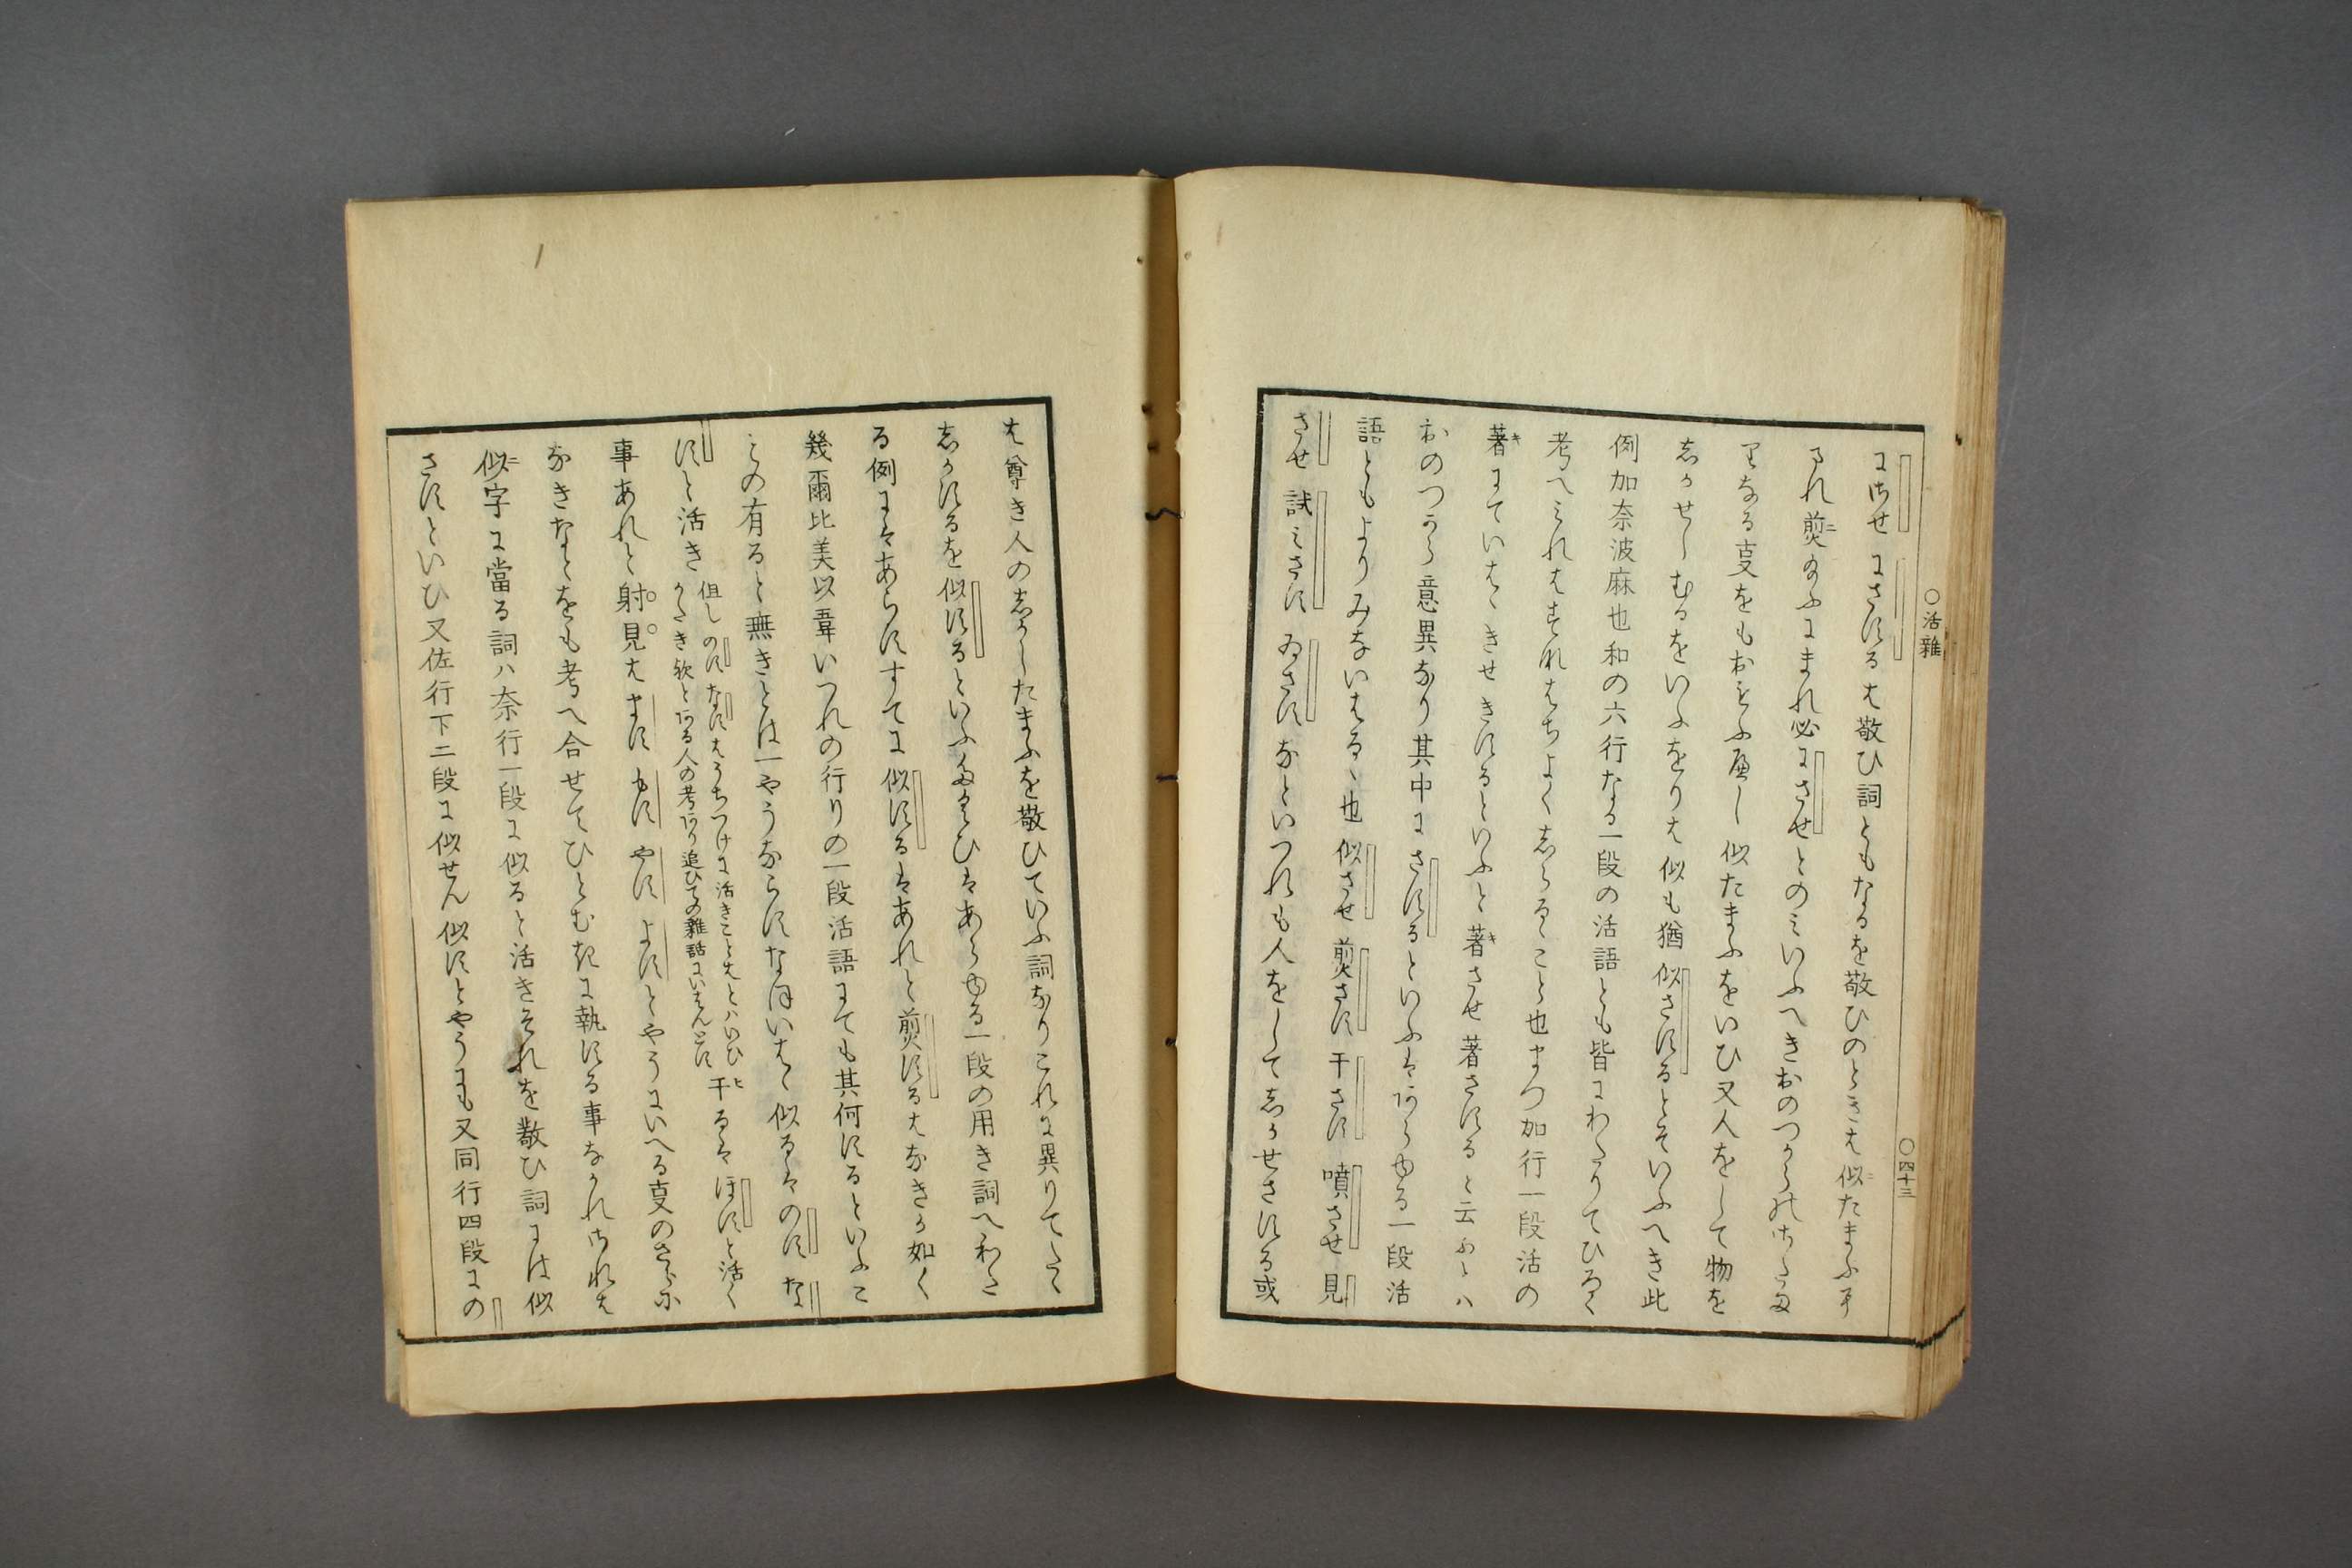 ○活雜
○四十三
にさせ にさするは敬ひ詞ともなるを敬ひのときは似たまふ
まれ煎給ふにまれ必にさせとのみいふへきおのつから
なる事をもおもふへし似たまふをいひ又人をして物を
しかせしむるをいふをりは似も猶似さするとそいふへき此
例加奈波麻也和の六行なる一段の活語とも皆にわたりてひろく
考へみれはそれはちよくしらるゝこと也まつ加行一段活の
著にていはゝきせきするといふと著させ著さすると云ふとハ
おのつから意異なり其中にさするといふはあらゆる一段活
語ともよりみないはるゝ也 似させ 煎さす 干さす 噴させ 見
させ 試みさす ゐさす なといつれも人をしてしかせさする或
は尊き人のしかしたまふを敬ひていふ詞なりこれに異りてたゝ
しかするを似するといふたくひはあらゆる一段の用き詞へわた
る例にはあらすすてに似するはあれと煎するはなきか如く
幾爾比美以韋いつれの行りの一段活語にても其何するといふこ
との有ると無きとは一やうならすなほいはゝ似るはのす な
すと活き 但しのす なすはうちつけに活きことはとハいひ
かたき歟とある人の考あり追ひての雜話にいはんとす 干るはほすと活く
事あれと射見は ます もす やす よす とやうにいへる事のさらに
なきなとをも考へ合せてひとむきに執する事なかれされは
似字に當る詞ハ奈行一段に似ると活きそれを敬ひ詞には似
さすといひ又佐行下二段に似せん 似すとやうにも又同行四段にの